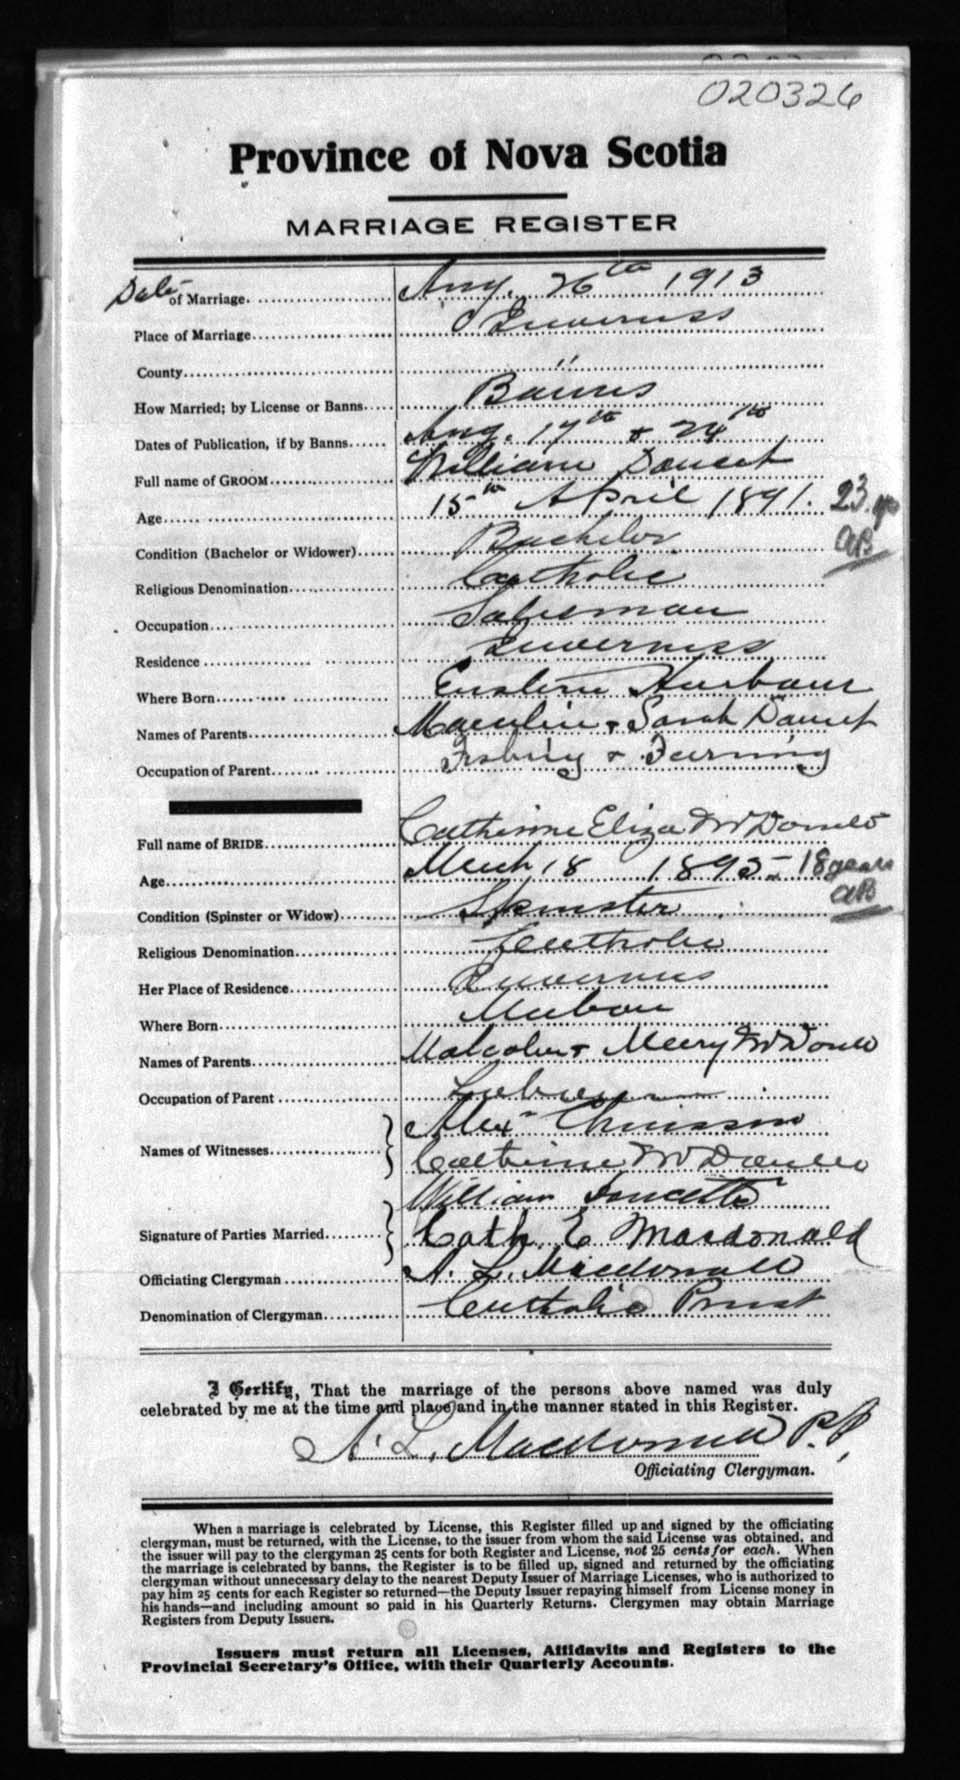 020326
Province of Nova Scotia
MARRIAGE REGISTER
Date of Marriage Aug. 26th 1913
Place of Marriage Inverness
County "
How Married; by License or Banns Banns
Dates of Publication, if by Banns Aug. 17th & 24th
Full name of GROOM William Doucet
Age 15th April 1891. 23 yrs
AB
Condition (Bachelor or Widower) Bachelor
Religious Denomination Catholic
Occupation Salesman
Residence Inverness
Where Born Eastern Harbour
Names of Parents & Sarah Doucet
Occupation of Parent Fishing & Farming
Full name of BRIDE Catherine Eliza McDonald
Age March 18 1895 18 years
AB
Condition (Spinster or Widow) Spinster
Religious Denomination Catholic
Her Place of Residence Inverness
Where Born Mabou
Names of Parents Malcolm & Mary McDonald
Occupation of Parent Laborer
Names of Witnesses Alex Chiasson
Catherine McDonald
William Doucette
Signature of Parties Married Cath. E Macdonald
Officiating Clergyman A. L. Macdonald
Denomination of Clergyman Catholic Priest
I Certify, That the marriage of the persons above named was duly
celebrated by me at the time and place and in the manner stated in this Register.
A. L. Macdonald P.P.
Officiating Clergyman.
When a marriage is celebrated by License, this Register filled up and signed by the officiating
clergyman, must be returned, with the License, to the issuer from whom the said License was obtained, and
the issuer will pay to the clergyman 25 cents for both Register and License, not 25 cents for each. When
the marriage is celebrated by banns, the Register is to be filled up, signed and returned by the officiating
clergyman without unnecessary delay to the nearest Deputy Issuer of Marriage Licenses, who is authorized to
pay him 25 cents for each Register so returned—the Deputy Issuer repaying himself from License money in
his hands—and including amount so paid in his Quarterly Returns. Clergymen may obtain Marriage
Registers from Deputy Issuers.
Issuers must return all Licenses, Affidavits and Registers to the
Provincial Secretary's Office, with their Quarterly Accounts.